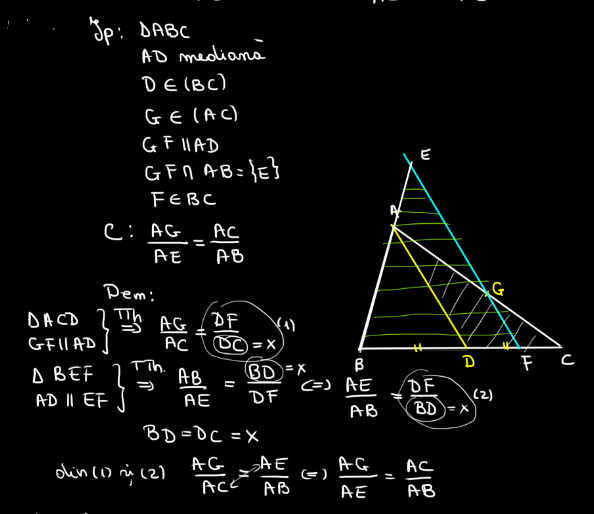 Ip: ΔABC
AD mediană
D ∈ (BC)
G ∈ (AC)
GF ∥ AD
GF ∩ AB = {E}
F ∈ BC
C: AG/AE = AC/AB
Dem:
ΔACD
GF ∥ AD } TTh ⇒ AG/AC = DF/DC = x (1)
Δ BEF
AD ∥ EF } TTh. ⇒ AB/AE = BD = x/DF (=) AE/AB = DF/BD = x (2)
BD = DC = x
din (1) și (2) AG/AC = AE/AB (=) AG/AE = AC/AB
E
A
G
B
D
F
C